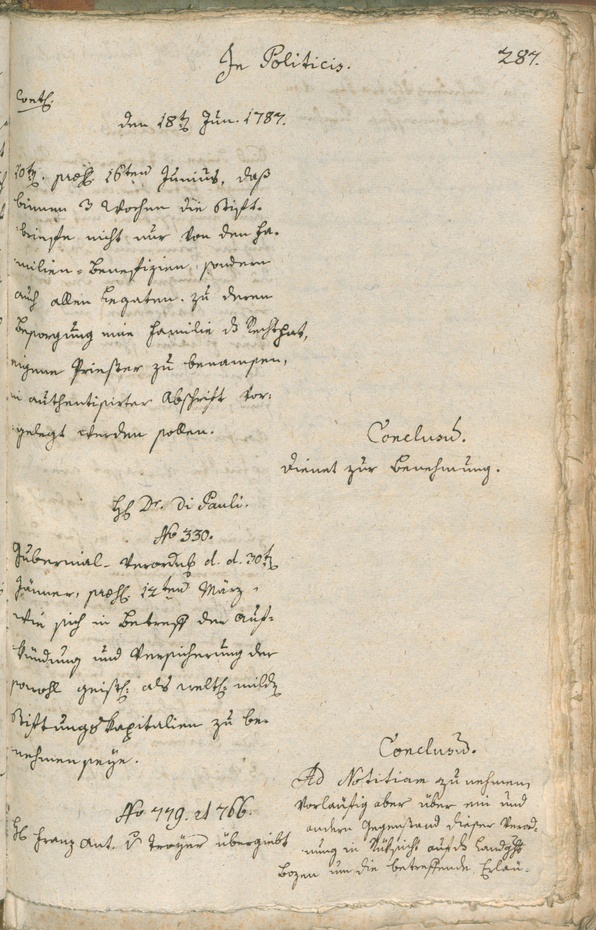 In Politicis.
287.
Contl:
den 18t Jun. 1787.
10t. præs. 16ten Junius, daß
binnen 3 Wochen die Stift-
briefe nicht nur von den Fa-
milien-Benefizien, sondern
auch allen Legaten, zu deren
Besorgung eine Familie ds Recht hat,
eigene Priester zu benamsen,
in authentisirter Abschrift vor-
gelegt werden sollen.
Conclusū.
Dienet zur Benehmung.
H. Dr. Di Pauli.
No 330.
Gubernial-Verordnḡ d. d. 30t
Jänner, præs. 12ten März,
wie sich in Betreff der Auf-
kündung und Versicherung der
sowohl geistl. als weltl. mildn
Stiftungskapitalien zu be-
nehmen seye.
Conclusū.
Ad Notitiam zu nehmen,
vorläufig aber über ein und
andern Gegenstand dieser Verord-
nung in Rüksicht auf ds Landgḥt
Bozen um die betreffende Erläu-
No 779. et 766.
H. Franz Ant. v. Troyer übergiebt